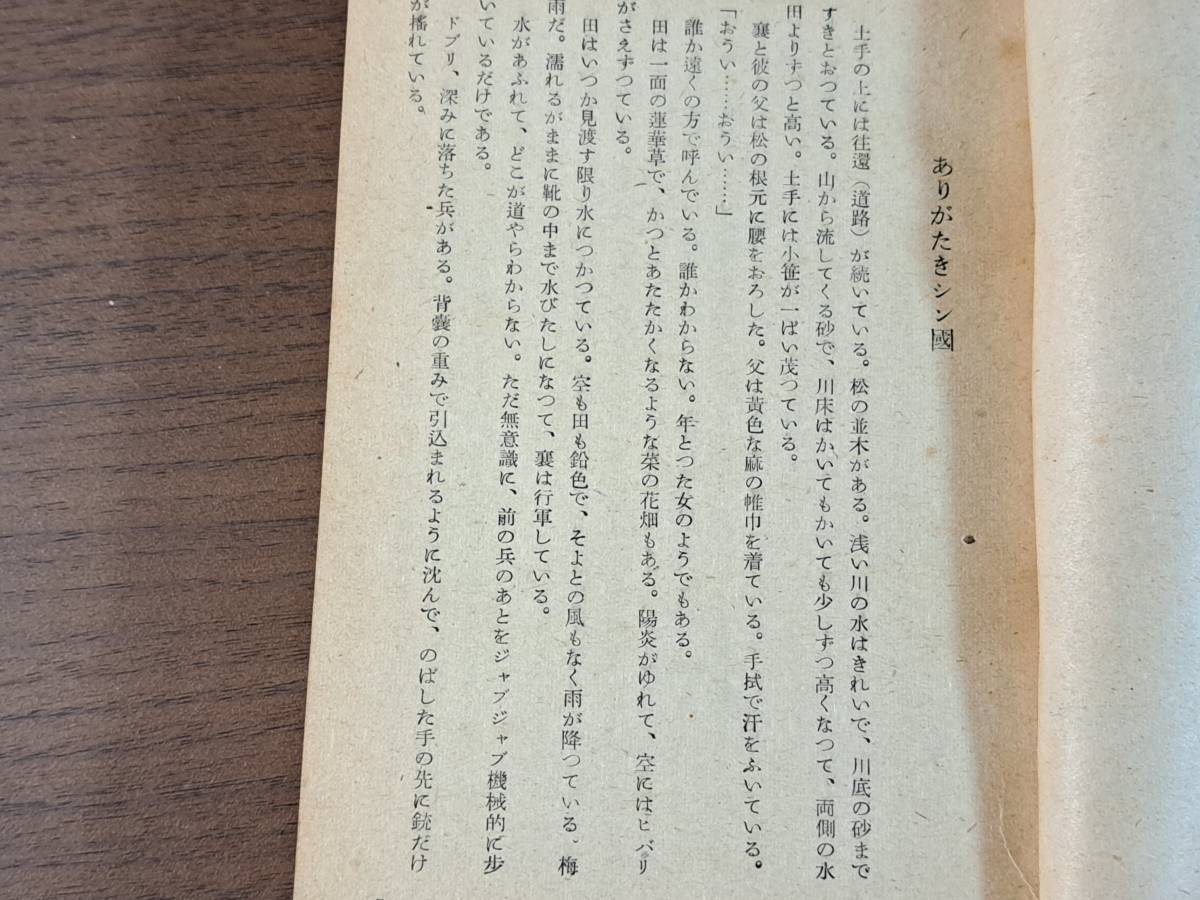 ありがたきシン國
土手の上には往還(道路)が続いている。松の並木がある。浅い川の水はきれいで、川底の砂まで
すきとおつている。山から流してくる砂で、川床はかいてもかいても少しずつ高くなつて、両側の水
田よりずつと高い。土手には小笹が一ぱい茂つている。
襄と彼の父は松の根元に腰をおろした。父は黄色な麻の帷巾を着ている。手拭で汗をふいている。
「おうい……おうい……」
誰か遠くの方で呼んでいる。誰かわからない。年とつた女のようでもある。
田は一面の蓮華草で、かつとあたたかくなるような菜の花畑もある。陽炎がゆれて、空にはヒバリ
がさえずつている。
田はいつか見渡す限り水につかつている。空も田も鉛色で、そよとの風もなく雨が降つている。梅
雨だ。濡れるがままに靴の中まで水びたしになつて、襄は行軍している。
水があふれて、どこが道やらわからない。ただ無意識に、前の兵のあとをジャブジャブ機械的に歩
いているだけである。
ドブリ、深みに落ちた兵がある。背嚢の重みで引込まれるように沈んで、のばした手の先に銃だけ
が搖れている。